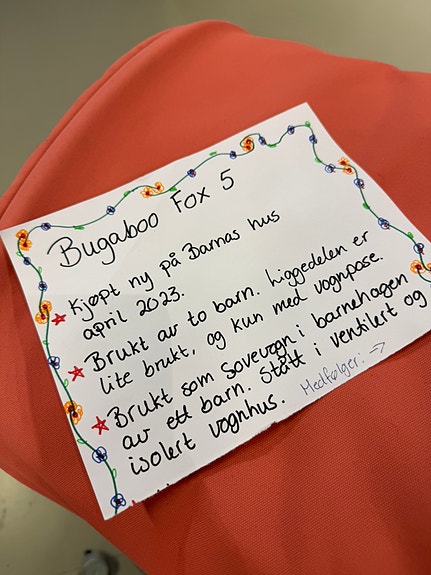 Bugaboo Fox 5
Kjøpt ny på Barnas hus
april 2023.
Brukt av to barn. Liggedelen er
lite brukt, og kun med vognpose.
Brukt som sovevogn i barnehagen
av ett barn. Stått i ventilert og
isolert vognhus.
Medfølger: →